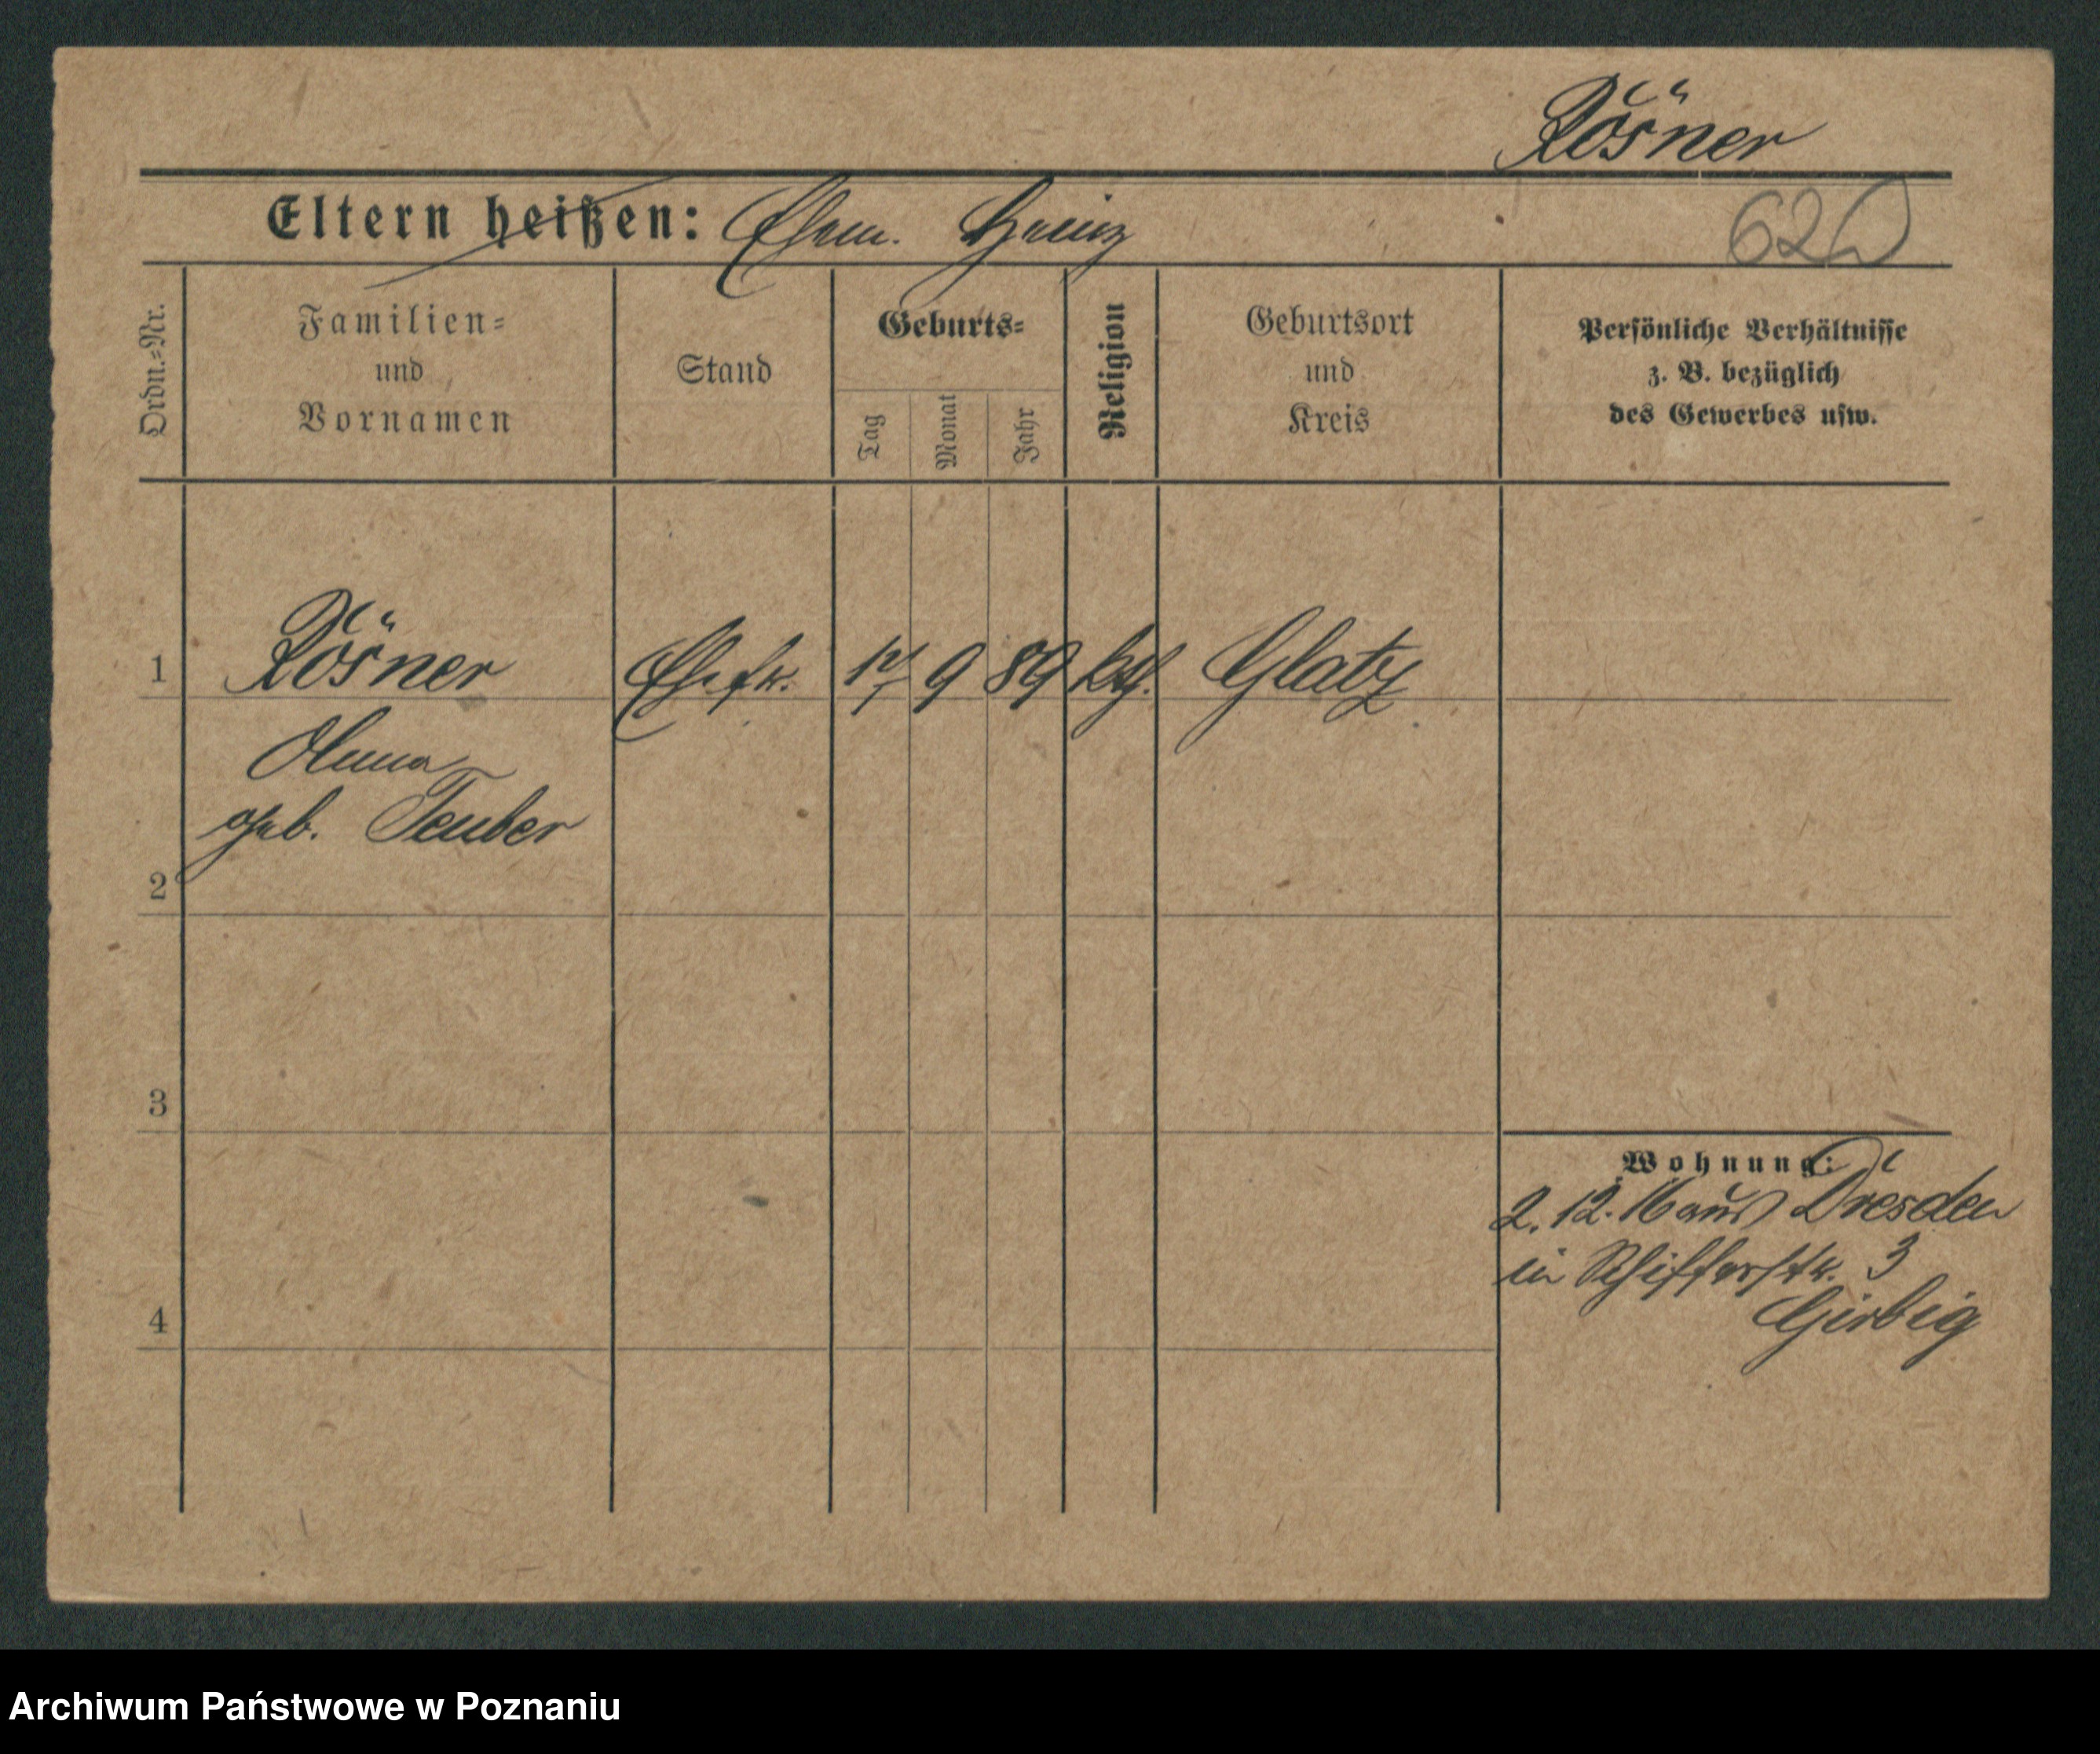 Rösner
Eltern heißen: Ehem. Heinz
62
Ordn.-Nr.
Familien-
und
Vornamen
Stand
Geburts-
Tag
Monat
Jahr
Religion
Geburtsort
und
Kreis
Persönliche Verhältnisse
z. B. bezüglich
des Gewerbes usw.
1 Rösner Ehefr. 17 9 89 kth. Glatz
geb. Teuber
2
3
4
Wohnung:
2. 12. 16 aus Dresden
in Schifferstr. 3
Girbig
Archiwum Państwowe w Poznaniu